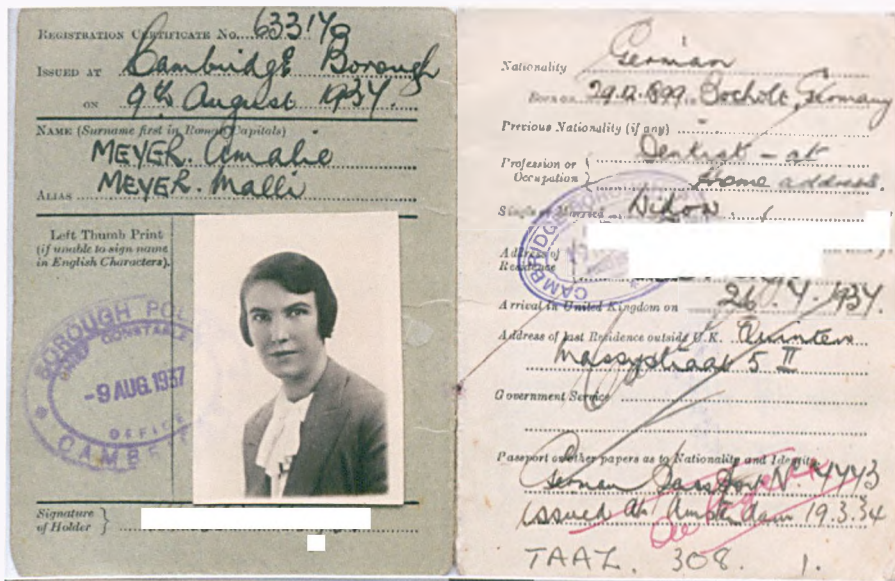 REGISTRATION CERTIFICATE No. 633178
ISSUED AT Cambridge Borough
ON 9th August 1937.
NAME (Surname first in Roman Capitals)
MEYER. Amalie
ALIAS MEYER. Malli
Left Thumb Print
(if unable to sign name
in English Characters).
BOROUGH POL
CHIEF CONSTABLE
-9 AUG 1937
OFFICE
CAMB
Signature
of Holder
Nationality German
Born on 29.12.1899 in Bocholt, Germany
Previous Nationality (if any)
Profession or
Occupation
Dentist - at
Home address.
Single or Married Widow
Address of
Residence
CAMBRIDGE BOROUGH
Arrival in United Kingdom on 26.4.1937.
Address of last Residence outside U.K. Quinten
Massystraat 5 II
Government Service
Passport or other papers as to Nationality and Identity
German Passport No 4443
issued at Amsterdam 19.3.34
TAAL. 308. 1.